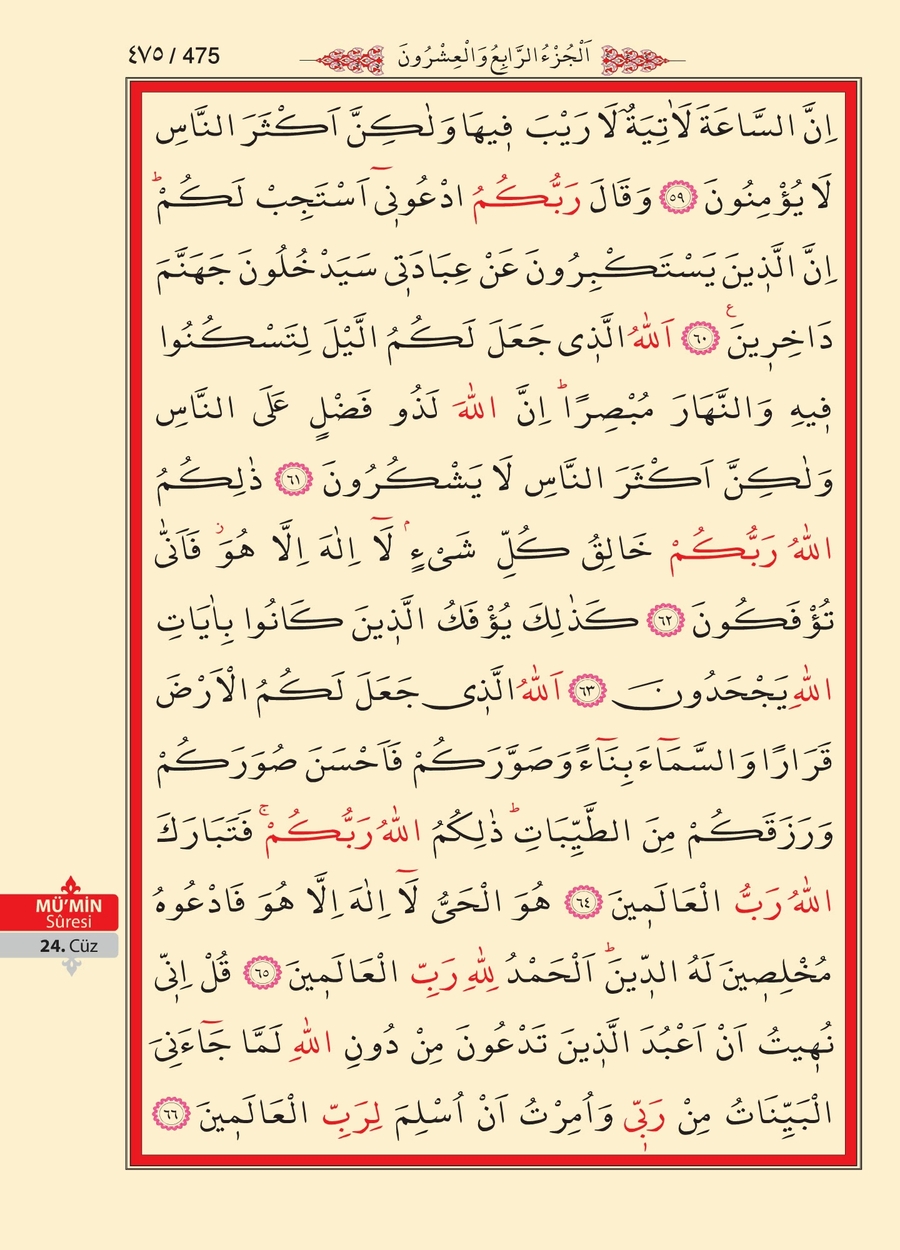 ٤٧٥ / 475
اَلْجُزْءُ الرَّابِعُ وَالْعِشْرُونَ
اِنَّ السَّاعَةَ لَاٰتِيَةٌ لَا رَيْبَ ف۪يهَا وَلٰكِنَّ اَكْثَرَ النَّاسِ
لَا يُؤْمِنُونَ ﴿٥٩﴾ وَقَالَ رَبُّكُمُ ادْعُون۪ٓي اَسْتَجِبْ لَكُمْۜ
اِنَّ الَّذ۪ينَ يَسْتَكْبِرُونَ عَنْ عِبَادَت۪ي سَيَدْخُلُونَ جَهَنَّمَ
دَاخِر۪ينَ۟ ﴿٦٠﴾ اَللّٰهُ الَّذ۪ي جَعَلَ لَكُمُ الَّيْلَ لِتَسْكُنُوا
ف۪يهِ وَالنَّهَارَ مُبْصِرًاۜ اِنَّ اللّٰهَ لَذُو فَضْلٍ عَلَى النَّاسِ
وَلٰكِنَّ اَكْثَرَ النَّاسِ لَا يَشْكُرُونَ ﴿٦١﴾ ذٰلِكُمُ
اللّٰهُ رَبُّكُمْ خَالِقُ كُلِّ شَيْءٍۢ لَٓا اِلٰهَ اِلَّا هُوَۘ فَاَنّٰى
تُؤْفَكُونَ ﴿٦٢﴾ كَذٰلِكَ يُؤْفَكُ الَّذ۪ينَ كَانُوا بِاٰيَاتِ
اللّٰهِ يَجْحَدُونَ ﴿٦٣﴾ اَللّٰهُ الَّذ۪ي جَعَلَ لَكُمُ الْاَرْضَ
قَرَارًا وَالسَّمَٓاءَ بِنَٓاءً وَصَوَّرَكُمْ فَاَحْسَنَ صُوَرَكُمْ
وَرَزَقَكُمْ مِنَ الطَّيِّبَاتِۜ ذٰلِكُمُ اللّٰهُ رَبُّكُمْۚ فَتَبَارَكَ
اللّٰهُ رَبُّ الْعَالَم۪ينَ ﴿٦٤﴾ هُوَ الْحَيُّ لَٓا اِلٰهَ اِلَّا هُوَ فَادْعُوهُ
مُخْلِص۪ينَ لَهُ الدّ۪ينَۜ اَلْحَمْدُ لِلّٰهِ رَبِّ الْعَالَم۪ينَ ﴿٦٥﴾ قُلْ اِنّ۪ي
نُه۪يتُ اَنْ اَعْبُدَ الَّذ۪ينَ تَدْعُونَ مِنْ دُونِ اللّٰهِ لَمَّا جَٓاءَنِيَ
الْبَيِّنَاتُ مِنْ رَبّ۪ي وَاُمِرْتُ اَنْ اُسْلِمَ لِرَبِّ الْعَالَم۪ينَ ﴿٦٦﴾
MÜ’MİN
Sûresi
24. Cüz